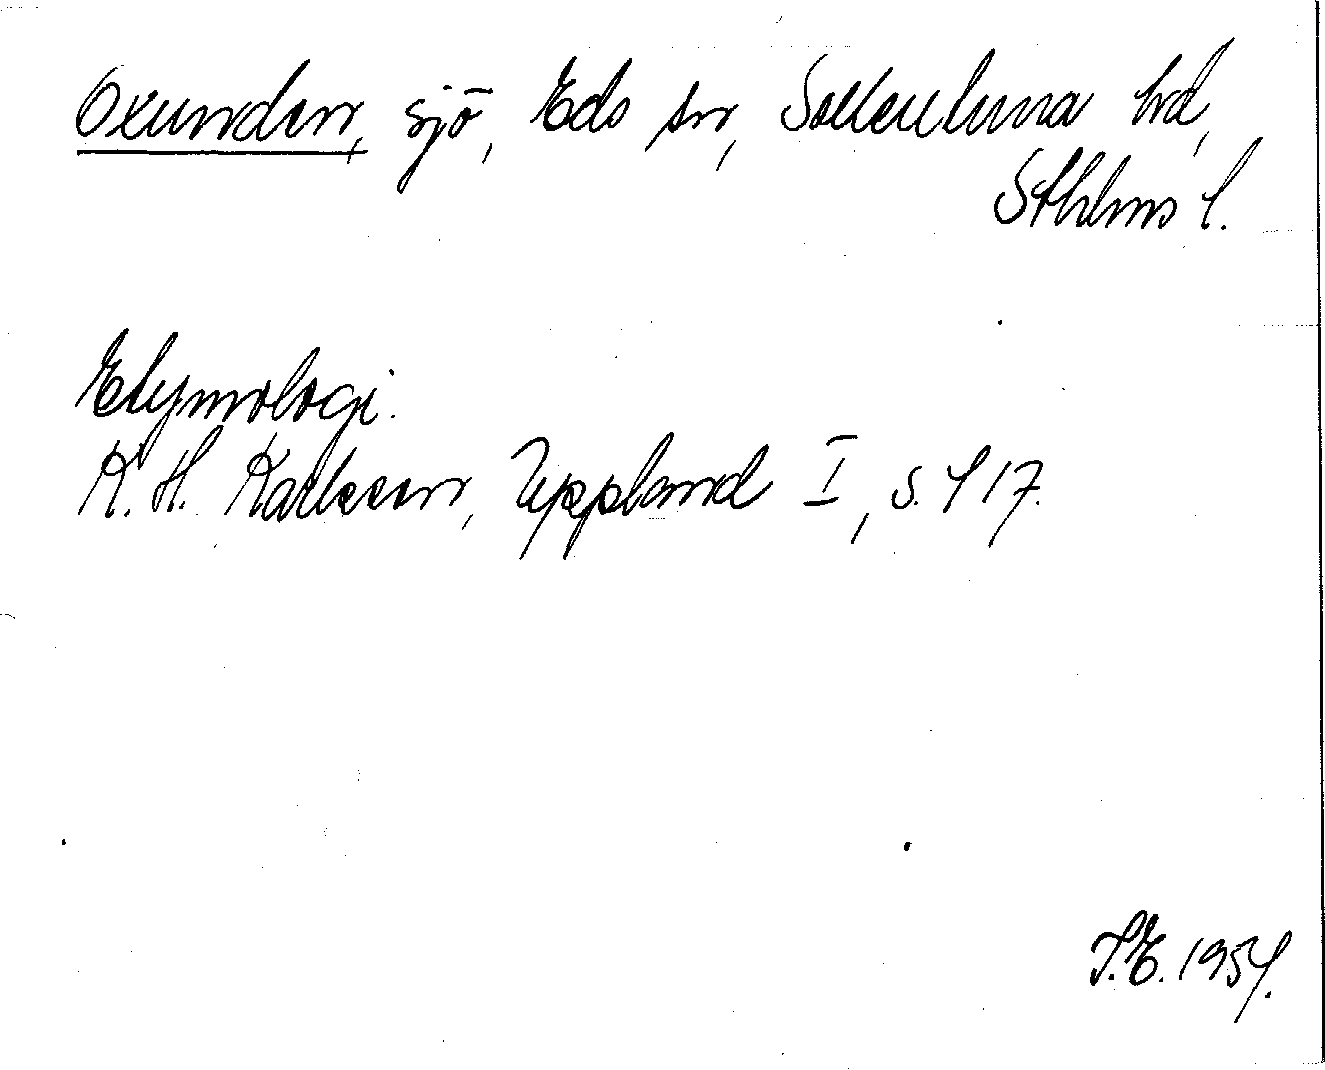 Oxunden, sjö, Eds sn, Sollentuna hd,
Sthlms l.
Etymologi.
K. H. Karlsson, Uppland I, s. 417.
T.E. 1954.